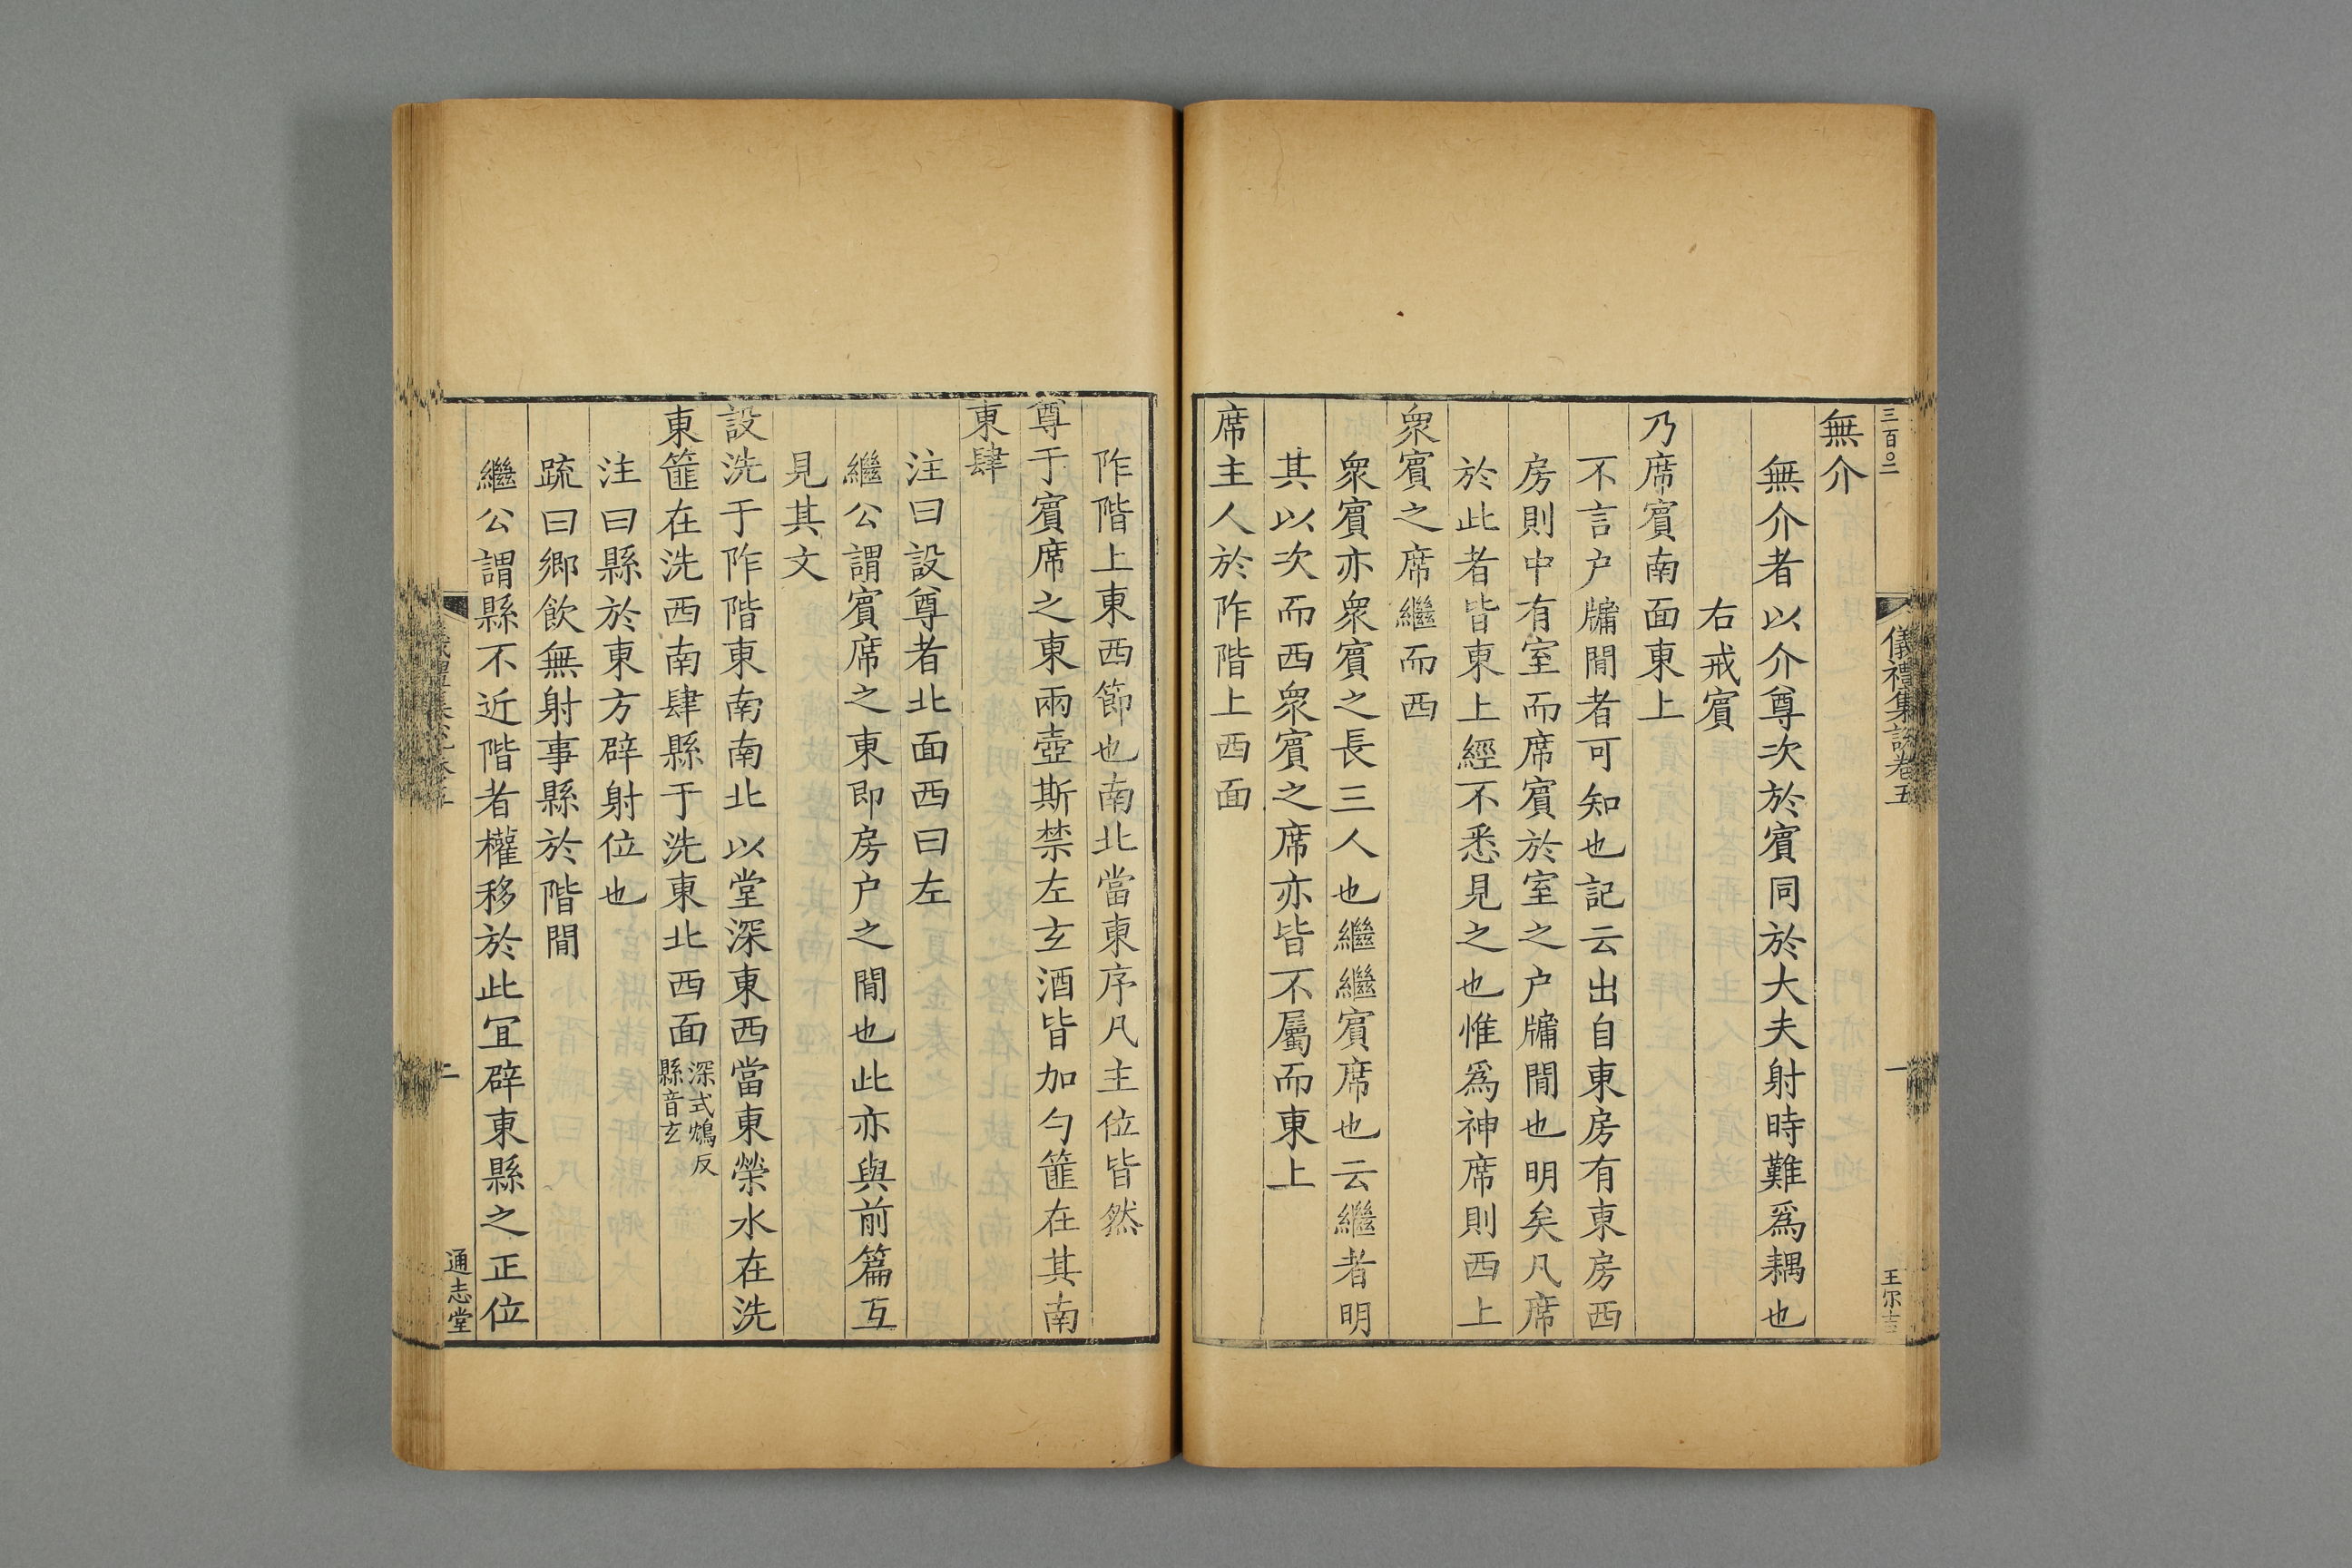 三百〇二
儀禮集說卷五
一
王尔吉
無介
無介者以介尊次於賓同於大夫射時難爲耦也
右戒賓
乃席賓南面東上
不言户牖閒者可知也記云出自東房有東房西
房則中有室而席賓於室之户牖閒也明矣凡席
於此者皆東上經不悉見之也惟爲神席則西上
衆賓之席繼而西
衆賓亦衆賓之長三人也繼繼賓席也云繼者明
其以次而西衆賓之席亦皆不屬而東上
席主人於阼階上西面
阼階上東西節也南北當東序凡主位皆然
尊于賓席之東兩壺斯禁左玄酒皆加勺篚在其南
東肆
注曰設尊者北面西曰左
繼公謂賓席之東即房户之閒也此亦與前篇互
見其文
設洗于阼階東南南北以堂深東西當東榮水在洗
東篚在洗西南肆縣于洗東北西面深式鴆反
縣音玄
注曰縣於東方辟射位也
疏曰鄉飲無射事縣於階閒
繼公謂縣不近階者權移於此宜辟東縣之正位
二
通志堂